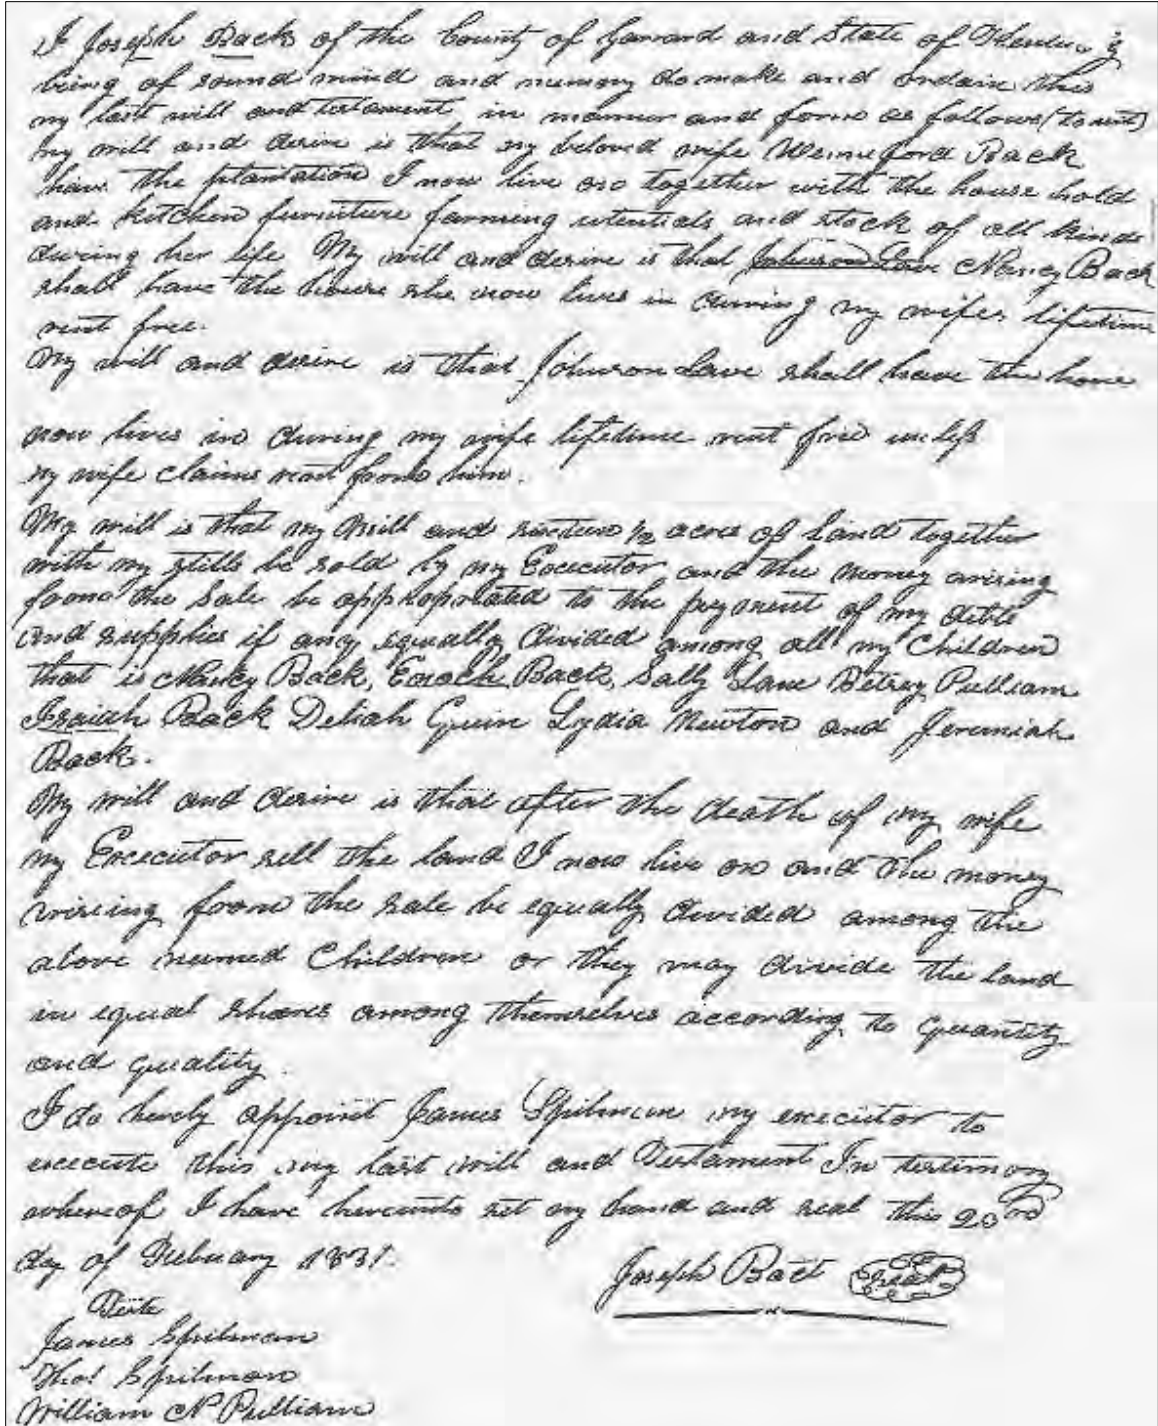 I Joseph Back of the County of Garrard and State of Kentucky
being of sound mind and memory do make and ordain this
my last will and testament in manner and form as follows (to wit)
My will and desire is that my beloved wife Winneford Back
have the plantation I now live on together with the house hold
and kitchen furniture farming utentials and stock of all kinds
during her life My will and desire is that Johnson Lane Nancy Back
shall have the house she now lives in during my wifes lifetime
rent free.
My will and desire is that Johnson Lane shall have the house
now lives in during my wife lifetime rent free unless
my wife claims rent from him.
My will is that my Mill and sixteen 1/2 acres of Land together
with my stills be sold by my Excecutor and the money arising
from the Sale be appropriated to the payment of my debts
and supplies if any equally divided among all my Children
that is Nancy Back, Enoch Back, Sally Lane Betsey Pulliam
Isaiah Back Deliah Guin Lydia Newton and Jeremiah
Back.
My will and desire is that after the death of my wife
my Excecutor sell the land I now live on and the money
arising from the sale be equally divided among the
above named Children or they may divide the land
in equal shares among themselves according to quantity
and quality.
I do hereby appoint James Spilman my executor to
execute this my last will and Testament In testimony
whereof I have hereunto set my hand and seal this 20
day of February 1831.
Joseph Back Seal
Teste
James Spilman
Thos Spilman
William N Pulliam